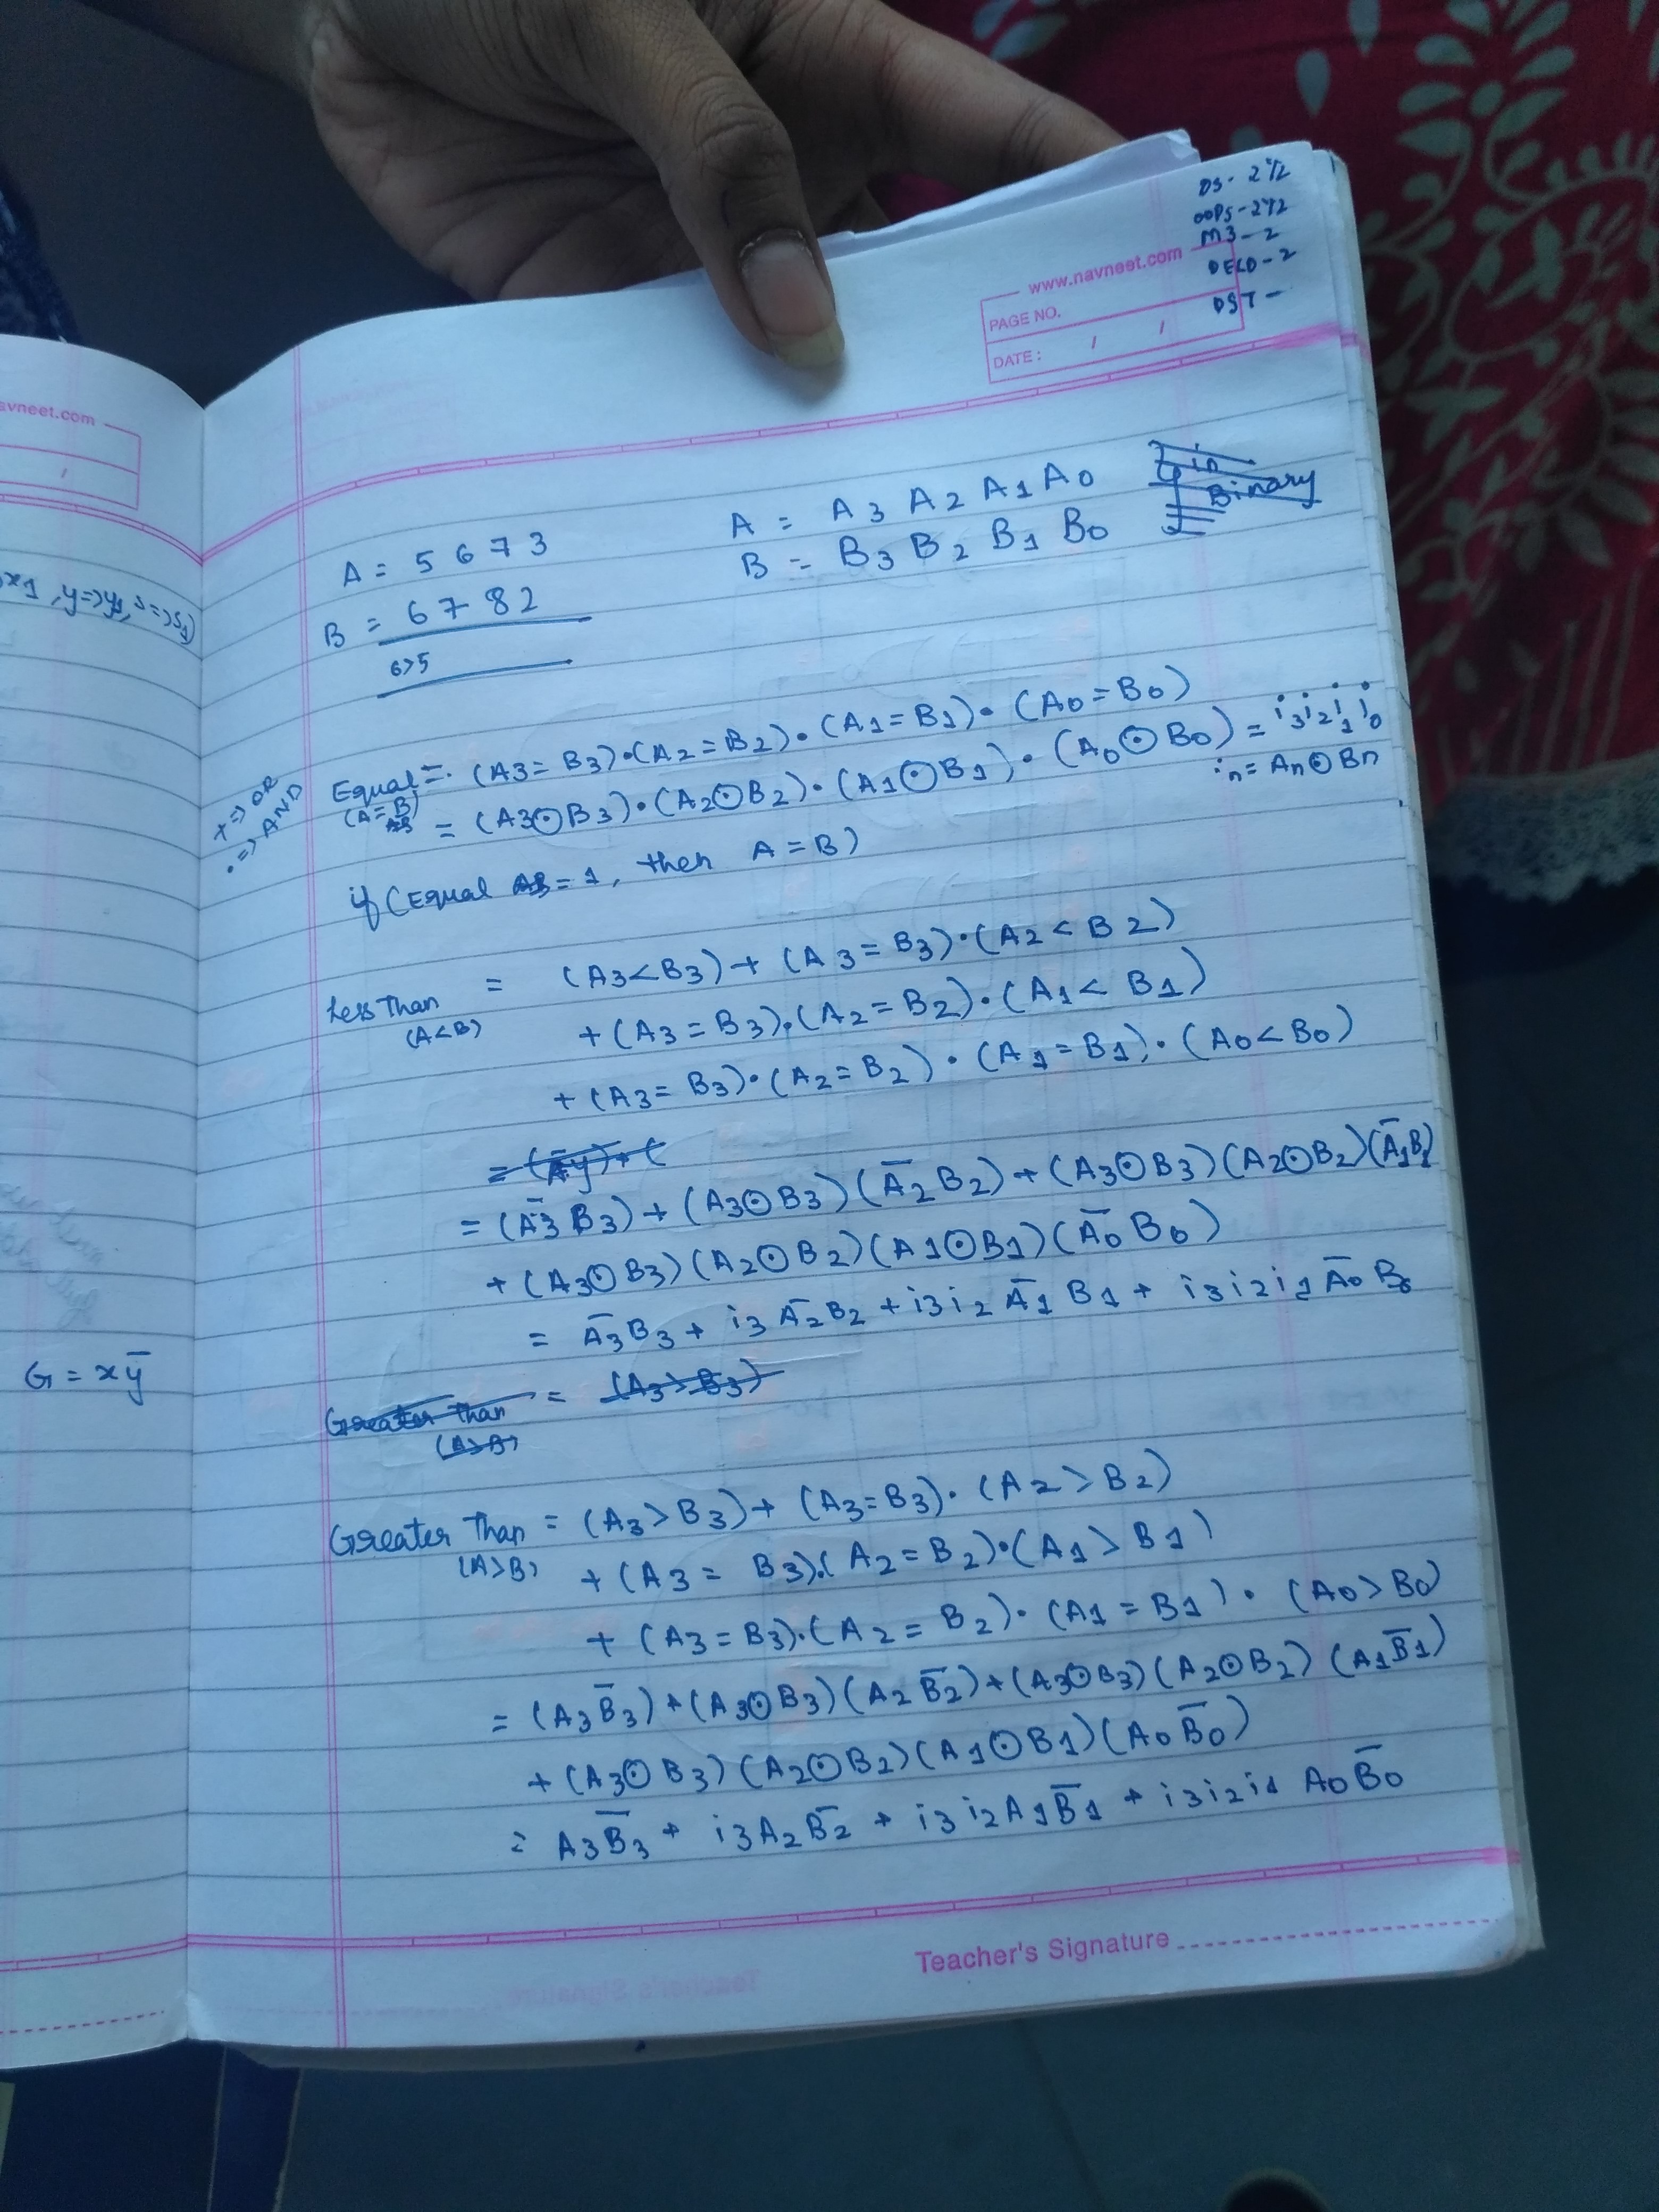 DS - 2 1/2
OOPS - 2 1/2
M3 - 2
DELD - 2
DST -
www.navneet.com
PAGE NO.
DATE: / /
A = 5 6 7 3
B = 6 7 8 2
6>5
A = A3 A2 A1 A0
B = B3 B2 B1 B0
in
Binary
+ => OR
. => AND
Equal = (A3 = B3)•(A2 = B2)•(A1 = B1)•(A0 = B0)
(A=B)
= (A3⊙B3)•(A2⊙B2)•(A1⊙B1)•(A0⊙B0) = i3 i2 i1 i0
in = An⊙Bn
if (Equal = 1, then A = B)
Less Than = (A3<B3) + (A3 = B3)•(A2 < B2)
(A<B)
+ (A3 = B3)•(A2 = B2)•(A1 < B1)
+ (A3 = B3)•(A2 = B2)•(A1 = B1)•(A0 < B0)
= (A̅3 B3) + (A3⊙B3)(A̅2 B2) + (A3⊙B3)(A2⊙B2)(A̅1 B1)
+ (A3⊙B3)(A2⊙B2)(A1⊙B1)(A̅0 B0)
= A̅3 B3 + i3 A̅2 B2 + i3 i2 A̅1 B1 + i3 i2 i1 A̅0 B0
Greater Than = (A3 > B3)
(A>B)
Greater Than = (A3 > B3) + (A3 = B3)•(A2 > B2)
(A>B)
+ (A3 = B3)•(A2 = B2)•(A1 > B1)
+ (A3 = B3)•(A2 = B2)•(A1 = B1)•(A0 > B0)
= (A3 B̅3) + (A3⊙B3)(A2 B̅2) + (A3⊙B3)(A2⊙B2)(A1 B̅1)
+ (A3⊙B3)(A2⊙B2)(A1⊙B1)(A0 B̅0)
= A3 B̅3 + i3 A2 B̅2 + i3 i2 A1 B̅1 + i3 i2 i1 A0 B̅0
Teacher's Signature
G = x y̅